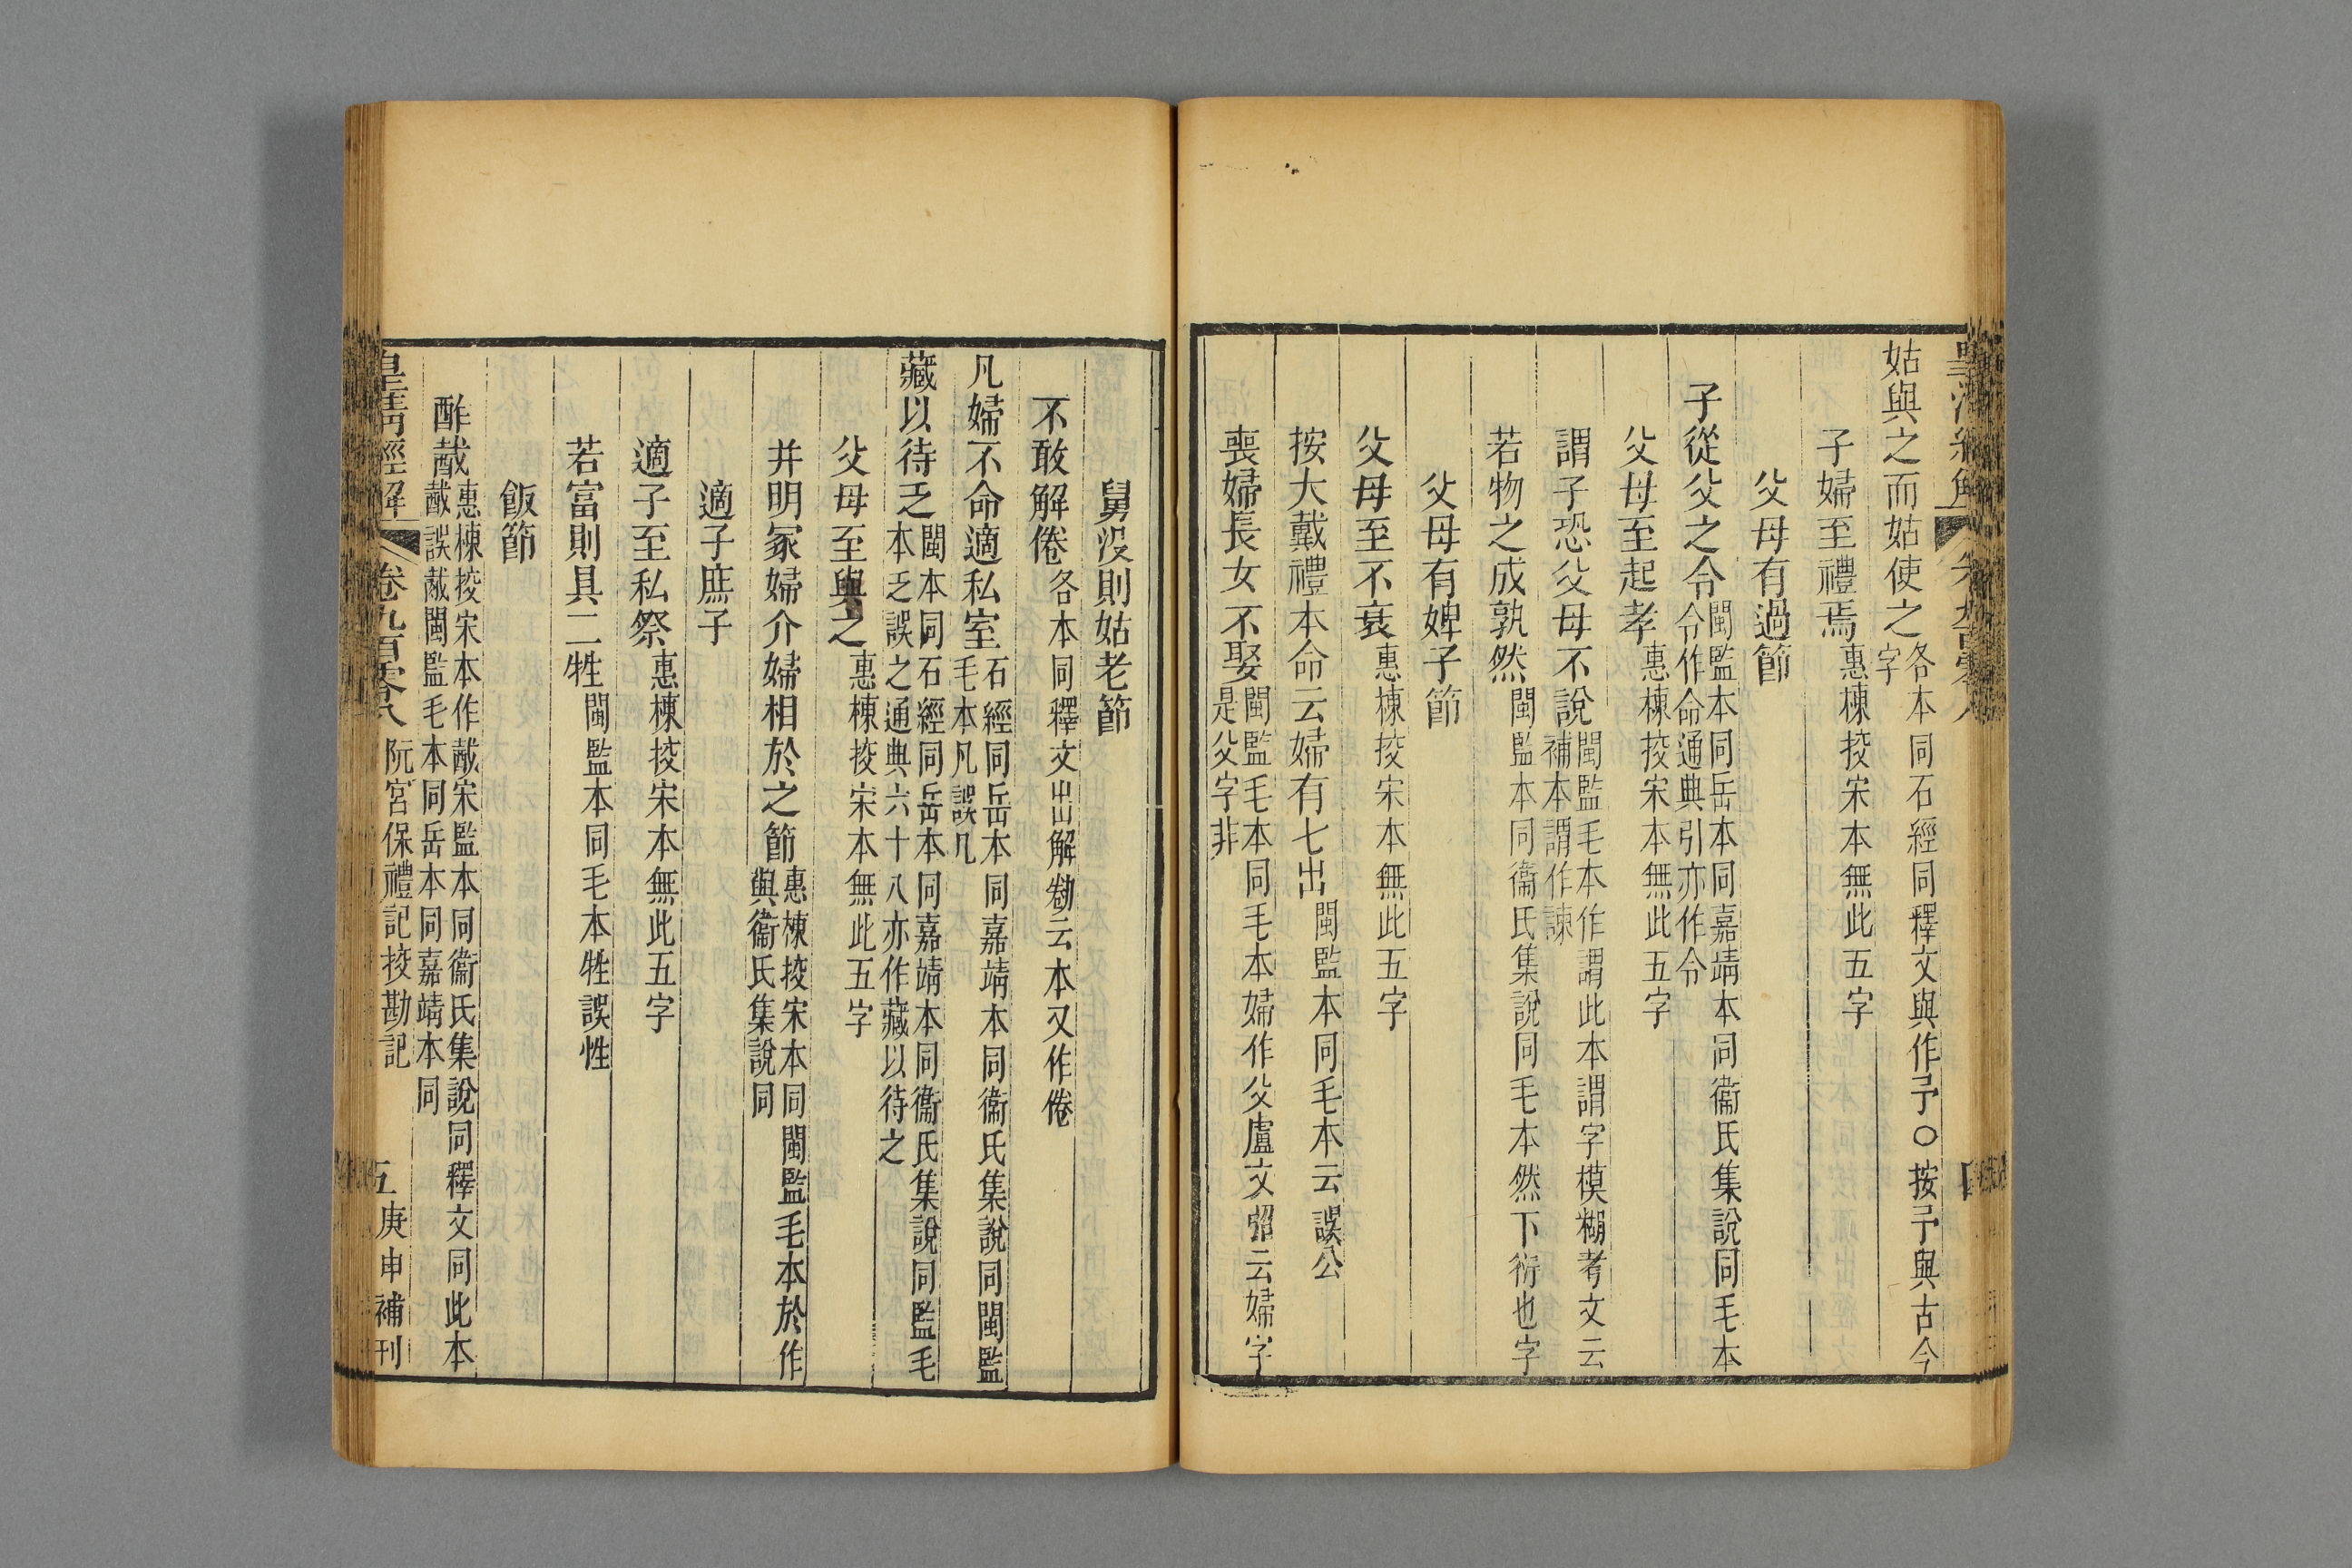 姑與之而姑使之各本同石經同釋文與作予〇按予與古今字
子婦至禮焉惠棟挍宋本無此五字
父母有過節
子從父之令閩監本同岳本同嘉靖本同衞氏集說同毛本令作命通典引亦作令
父母至起孝惠棟挍宋本無此五字
謂子恐父母不說閩監毛本作謂此本謂字模糊考文云補本謂作諫
若物之成孰然閩監本同衞氏集說同毛本然下衍也字
父母有婢子節
父母至不衰惠棟挍宋本無此五字
按大戴禮本命云婦有七出閩監本同毛本云誤公
喪婦長女不娶閩監毛本同毛本婦作父盧文弨云婦字是父字非
舅沒則姑老節
不敢解倦各本同釋文出解勌云本又作倦
凡婦不命適私室石經同岳本同嘉靖本同衞氏集說同閩監毛本凡誤凢
藏以待乏閩本同石經同岳本同嘉靖本同衞氏集說同監毛本乏誤之通典六十八亦作藏以待之
父母至與之惠棟挍宋本無此五字
并明冢婦介婦相於之節惠棟挍宋本同閩監毛本於作與衞氏集說同
適子庶子
適子至私祭惠棟挍宋本無此五字
若富則具二牲閩監本同毛本牲誤性
飯節
酢胾惠棟挍宋本作胾宋監本同衞氏集說同釋文同此本胾誤胾閩監毛本同岳本同嘉靖本同
皇清經解 卷九百零八 阮宮保禮記挍勘記 五 庚申補刊